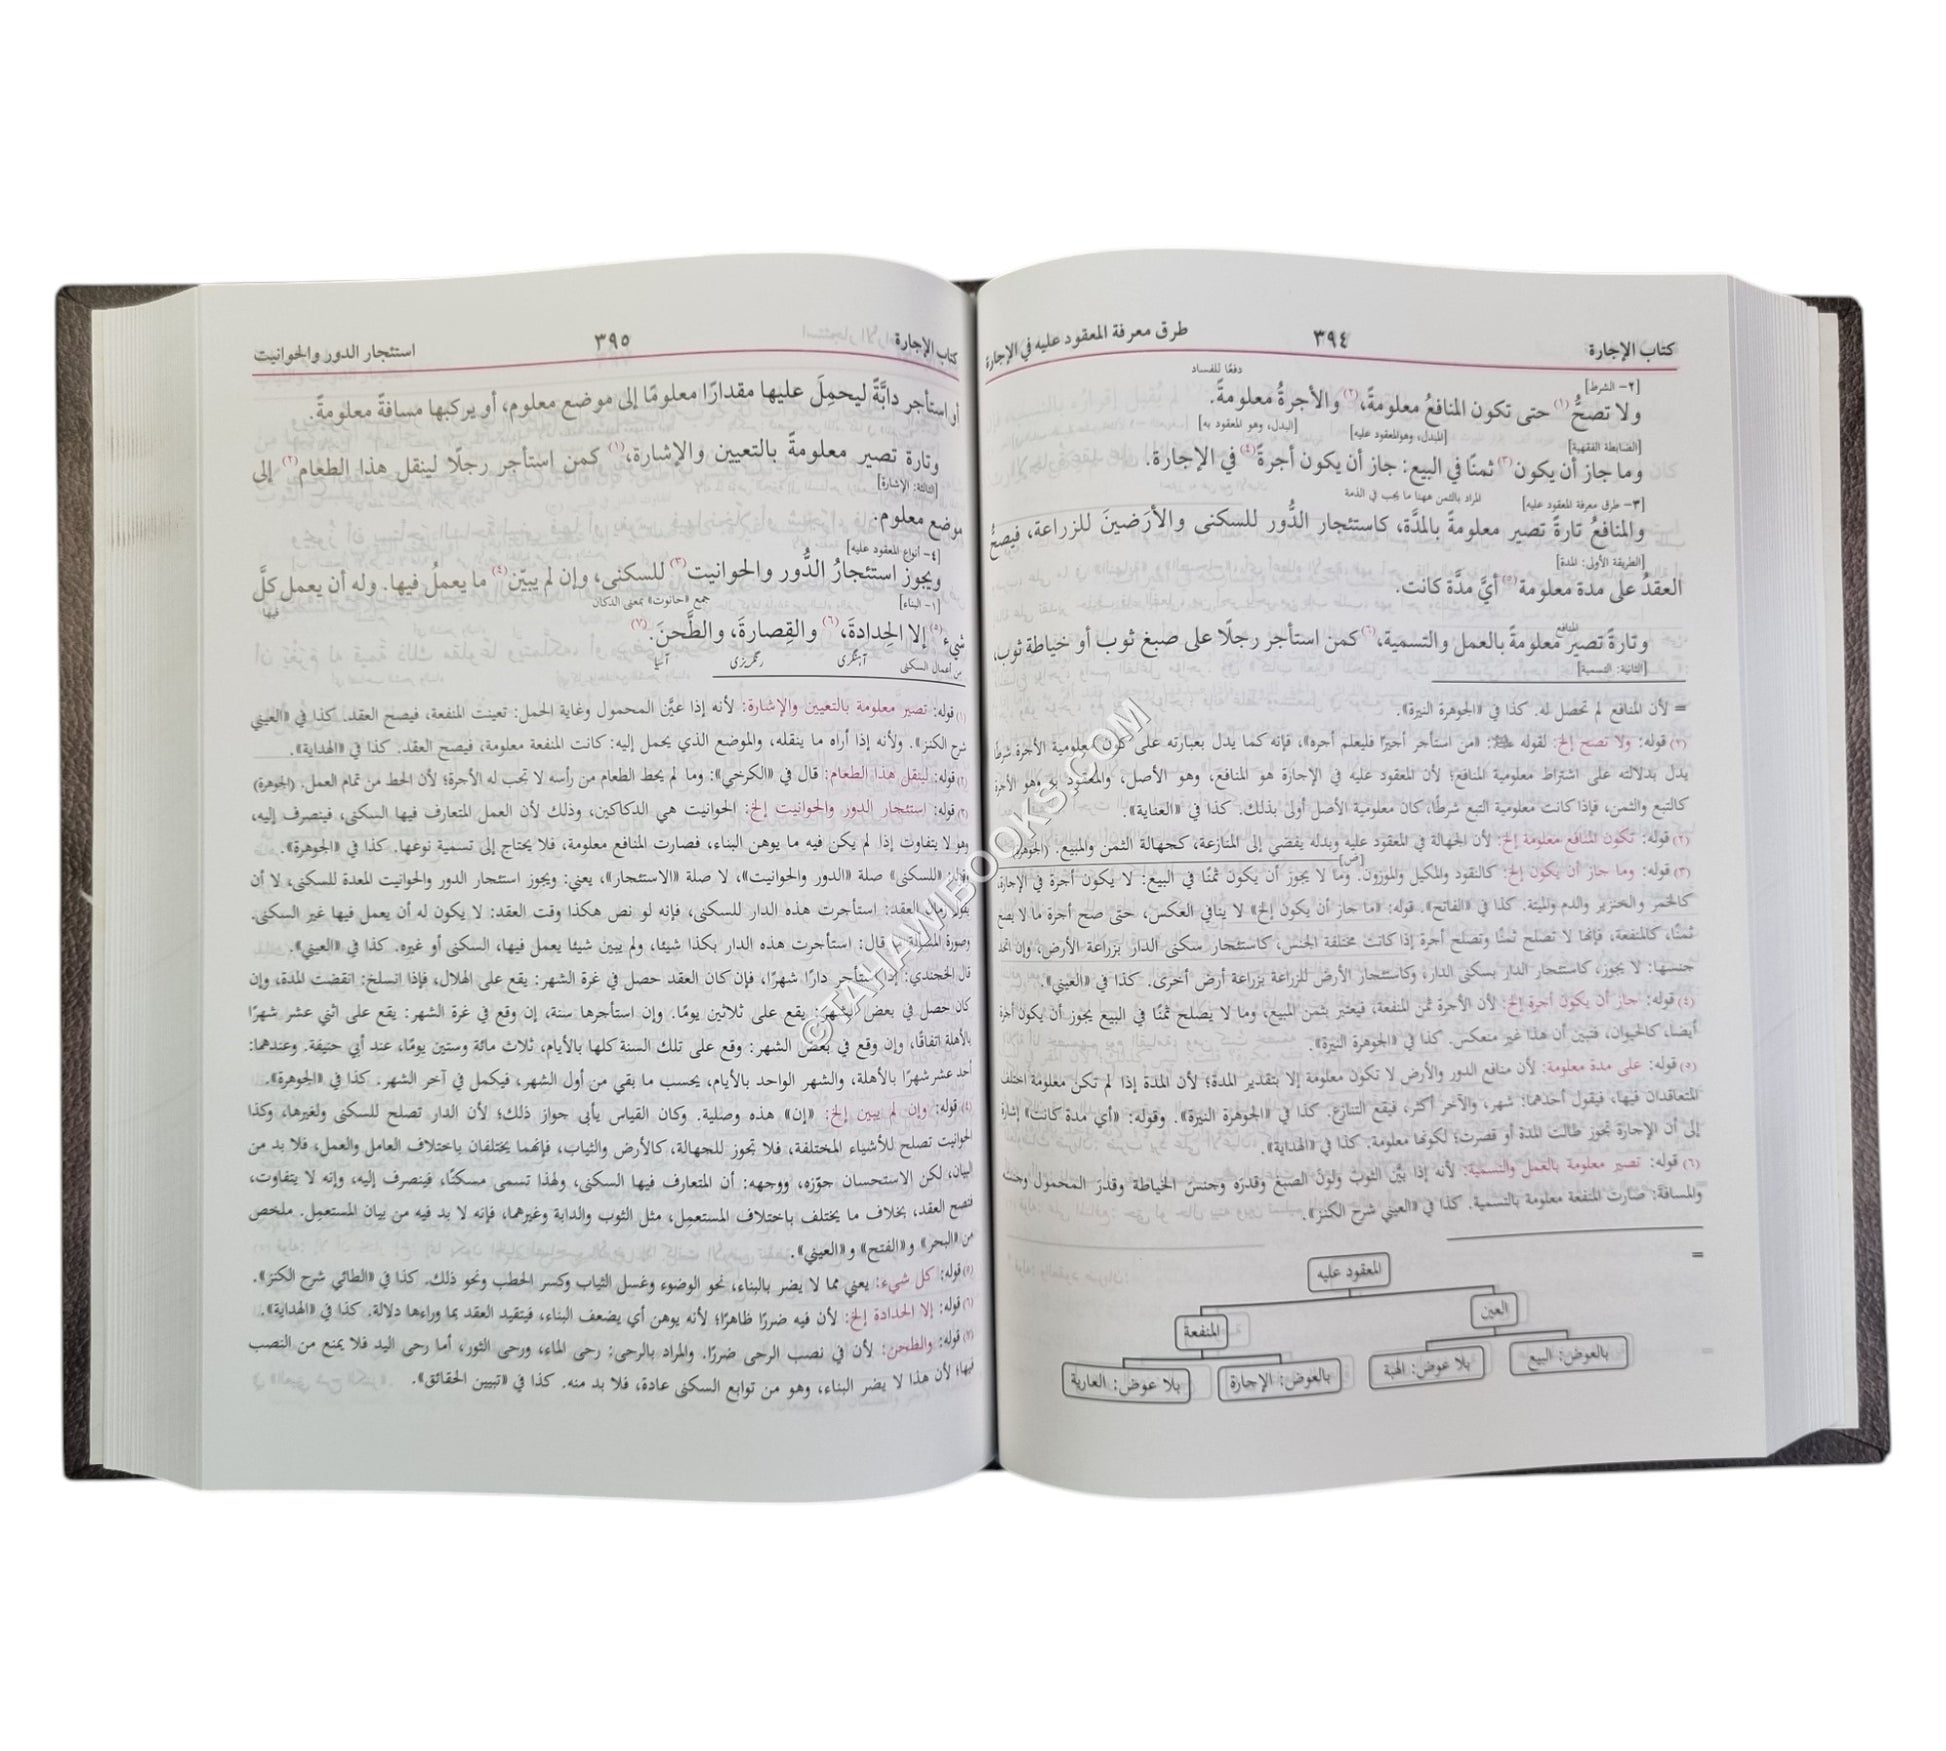 كتاب الإجارة ٣٩٤ طرق معرفة المعقود عليه في الإجارة
[٢- الشرط] دفعًا للفساد
ولا تصحُّ(١) حتى تكون المنافعُ معلومةً،(٢) والأجرةُ معلومةً.
[الضابطة الفقهية] [المبدل، وهو المعقود عليه] [البدل، وهو المعقود به]
وما جاز أن يكون(٣) ثمنًا في البيع: جاز أن يكون أجرةً(٤) في الإجارة.
[٣- طرق معرفة المعقود عليه] المراد بالثمن ههنا ما يجب في الذمة
والمنافعُ تارةً تصير معلومةً بالمدَّة، كاستئجار الدُّور للسكنى والأرَضينَ للزراعة، فيصحُّ
[الطريقة الأولى: المدة]
العقدُ على مدة معلومة(٥) أيَّ مدَّة كانت.
المنافع
وتارةً تصير معلومةً بالعمل والتسمية،(٦) كمن استأجر رجلًا على صبغ ثوب أو خياطة ثوب،
[الثانية: التسمية]
= لأن المنافع لم تحصل له. كذا في «الجوهرة النيرة».
(١) قوله: ولا تصح إلخ: لقوله ﷺ: «من استأجر أجيرًا فليعلم أجره»، فإنه كما يدل بعبارته على كون معلومية الأجرة شرطًا
يدل بدلالته على اشتراط معلومية المنافع؛ لأن المعقود عليه في الإجارة هو المنافع، وهو الأصل، والمعقود به وهو الأجرة
كالتبع والثمن، فإذا كانت معلومية التبع شرطًا، كان معلومية الأصل أولى بذلك. كذا في «العناية».
(٢) قوله: تكون المنافع معلومة إلخ: لأن الجهالة في المعقود عليه وبدله يفضي إلى المنازعة، كجهالة الثمن والمبيع. (الجوهرة)
[ض]
(٣) قوله: وما جاز أن يكون إلخ: كالنقود والمكيل والموزون. وما لا يجوز أن يكون ثمنًا في البيع: لا يكون أجرة في الإجارة،
كالخمر والخنزير والدم والميتة. كذا في «الفاتح». قوله: «ما جاز أن يكون إلخ» لا ينافي العكس، حتى صح أجرة ما لا يصح
ثمنًا، كالمنفعة، فإنها لا تصلح ثمنًا وتصلح أجرة إذا كانت مختلفة الجنس، كاستئجار سكنى الدار بزراعة الأرض، وإن اتحد
جنسها: لا يجوز، كاستئجار الدار بسكنى الدار، وكاستئجار الأرض للزراعة بزراعة أرض أخرى. كذا في «العيني».
(٤) قوله: جاز أن يكون أجرة إلخ: لأن الأجرة ثمن المنفعة، فيعتبر بثمن المبيع، وما لا يصلح ثمنًا في البيع يجوز أن يكون أجرة
أيضا، كالحيوان، فتبين أن هذا غير منعكس. كذا في «الجوهرة النيرة».
(٥) قوله: على مدة معلومة: لأن منافع الدور والأرض لا تكون معلومة إلا بتقدير المدة؛ لأن المدة إذا لم تكن معلومة اختلف
المتعاقدان فيها، فيقول أحدهما: شهر، والآخر أكثر، فيقع التنازع. كذا في «الجوهرة النيرة». وقوله: «أي مدة كانت» إشارة
إلى أن الإجارة تجوز طالت المدة أو قصرت؛ لكونها معلومة. كذا في «الهداية».
(٦) قوله: تصير معلومة بالعمل والتسمية: لأنه إذا بيَّن الثوبَ ولونَ الصبغ وقدرَه وجنسَ الخياطة وقدرَ المحمول وجنسَه
والمسافةَ: صارت المنفعة معلومة بالتسمية. كذا في «العيني شرح الكنز».
=
المعقود عليه
العين المنفعة
بالعوض: البيع بلا عوض: الهبة بالعوض: الإجارة بلا عوض: العارية
كتاب الإجارة ٣٩٥ استئجار الدور والحوانيت
أو استأجر دابَّةً ليحمِلَ عليها مقدارًا معلومًا إلى موضع معلوم، أو يركبها مسافةً معلومةً.
وتارة تصير معلومةً بالتعيين والإشارة،(١) كمن استأجر رجلًا لينقل هذا الطعام(٢) إلى
[الثالثة: الإشارة]
موضع معلوم.
[٤- أنواع المعقود عليه]
ويجوز استئجارُ الدُّور والحوانيت(٣) للسكنى، وإن لم يبيّن(٤) ما يعملُ فيها. وله أن يعمل كلَّ
[١- البناء] جمع «حانوت» بمعنى الدكان فيها
شيء(٥) إلا الحِدادةَ،(٦) والقِصارةَ، والطَّحنَ.(٧)
من أعمال السكنى آہنگری رنگریزی آٹیا
(١) قوله: تصير معلومة بالتعيين والإشارة: لأنه إذا عيَّن المحمول وغاية الحمل: تعينت المنفعة، فيصح العقد. كذا في «العيني
شرح الكنز». ولأنه إذا أراه ما ينقله، والموضع الذي يحمل إليه: كانت المنفعة معلومة، فيصح العقد. كذا في «الهداية».
(٢) قوله: لينقل هذا الطعام: قال في «الكرخي»: وما لم يحط الطعام من رأسه لا تجب له الأجرة؛ لأن الحط من تمام العمل. (الجوهرة)
(٣) قوله: استئجار الدور والحوانيت إلخ: الحوانيت هي الدكاكين، وذلك لأن العمل المتعارف فيها السكنى، فينصرف إليه،
وهو لا يتفاوت إذا لم يكن فيه ما يوهن البناء، فصارت المنافع معلومة، فلا يحتاج إلى تسمية نوعها. كذا في «الجوهرة».
وقوله: «للسكنى» صلة «الدور والحوانيت»، لا صلة «الاستئجار»، يعني: ويجوز استئجار الدور والحوانيت المعدة للسكنى، لا أن
يقول زمان العقد: استأجرت هذه الدار للسكنى، فإنه لو نص هكذا وقت العقد: لا يكون له أن يعمل فيها غير السكنى.
وصورة المسألة قال: استأجرت هذه الدار بكذا شيئا، ولم يبين شيئا يعمل فيها، السكنى أو غيره. كذا في «العيني».
قال الخجندي: إذا استأجر دارًا شهرًا، فإن كان العقد حصل في غرة الشهر: يقع على الهلال، فإذا انسلخ: انقضت المدة، وإن
كان حصل في بعض الشهر: يقع على ثلاثين يومًا. وإن استأجرها سنة، إن وقع في غرة الشهر: يقع على اثني عشر شهرًا
بالأهلة اتفاقًا، وإن وقع في بعض الشهر: وقع على تلك السنة كلها بالأيام، ثلاث مائة وستين يومًا، عند أبي حنيفة. وعندهما:
أحد عشر شهرًا بالأهلة، والشهر الواحد بالأيام، يحسب ما بقي من أول الشهر، فيكمل في آخر الشهر. كذا في «الجوهرة».
(٤) قوله: وإن لم يبين إلخ: «إن» هذه وصلية. وكان القياس يأبى جواز ذلك؛ لأن الدار تصلح للسكنى ولغيرها، وكذا
الحوانيت تصلح للأشياء المختلفة، فلا تجوز للجهالة، كالأرض والثياب، فإنهما يختلفان باختلاف العامل والعمل، فلا بد من
البيان، لكن الاستحسان جوّزه، ووجهه: أن المتعارف فيها السكنى، ولهذا تسمى مسكنًا، فينصرف إليه، وإنه لا يتفاوت،
فتصح العقد، بخلاف ما يختلف باختلاف المستعمِل، مثل الثوب والدابة وغيرهما، فإنه لا بد فيه من بيان المستعمِل. ملخص
من «البحر» و«الفتح» و«العيني».
(٥) قوله: كل شيء: يعني مما لا يضر بالبناء، نحو الوضوء وغسل الثياب وكسر الحطب ونحو ذلك. كذا في «الطائي شرح الكنز».
(٦) قوله: إلا الحدادة إلخ: لأن فيه ضررًا ظاهرًا؛ لأنه يوهن أي يضعف البناء، فيتقيد العقد بما وراءها دلالة. كذا في «الهداية».
(٧) قوله: والطحن: لأن في نصب الرحى ضررًا. والمراد بالرحى: رحى الماء، ورحى الثور، أما رحى اليد فلا يمنع من النصب
فيها؛ لأن هذا لا يضر البناء، وهو من توابع السكنى عادة، فلا بد منه. كذا في «تبيين الحقائق».
©TAHAWIBOOKS.COM